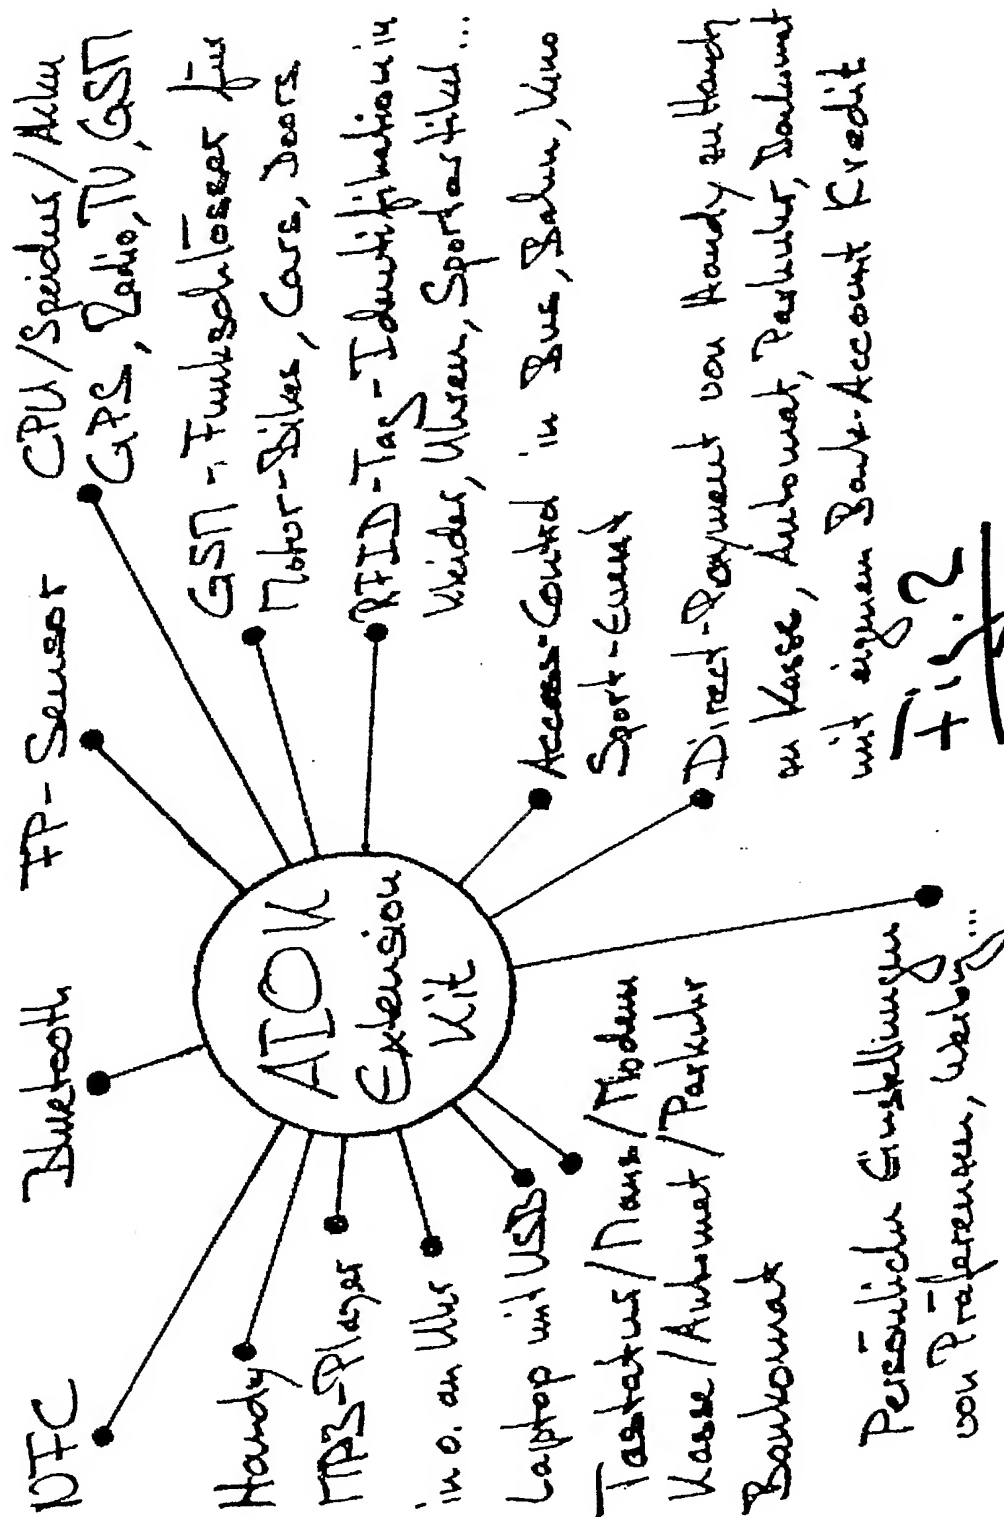 NFC
Bluetooth
FP-Sensor
CPU/Speicher/Akku
GPS, Radio, TV, GSM
GSM-Funkschlösser für
Motor-Bikes, Cars, Doors
RFID-Tag-Identifikation in
Kleider, Uhren, Sportartikel...
Access-Control in Bus, Bahn, Kino
Sport-Event
Direct-Payment von Handy zu Handy
an Kasse, Automat, Parkuhr, Bankomat
mit eigenem Bank-Account Kredit
AIOK
Extension
Kit
Handy
MP3-Player
in o. an Uhr
Laptop mit USB
Tastatur/Maus/Modem
Kasse/Automat/Parkuhr
Bankomat
Persönliche Einstellungen
von Präferenzen, Werbung...
Fig. 2